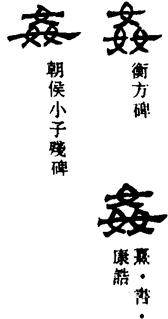 姦
衡方碑
姦
熹・書・
康誥
姦
朝侯小子殘碑